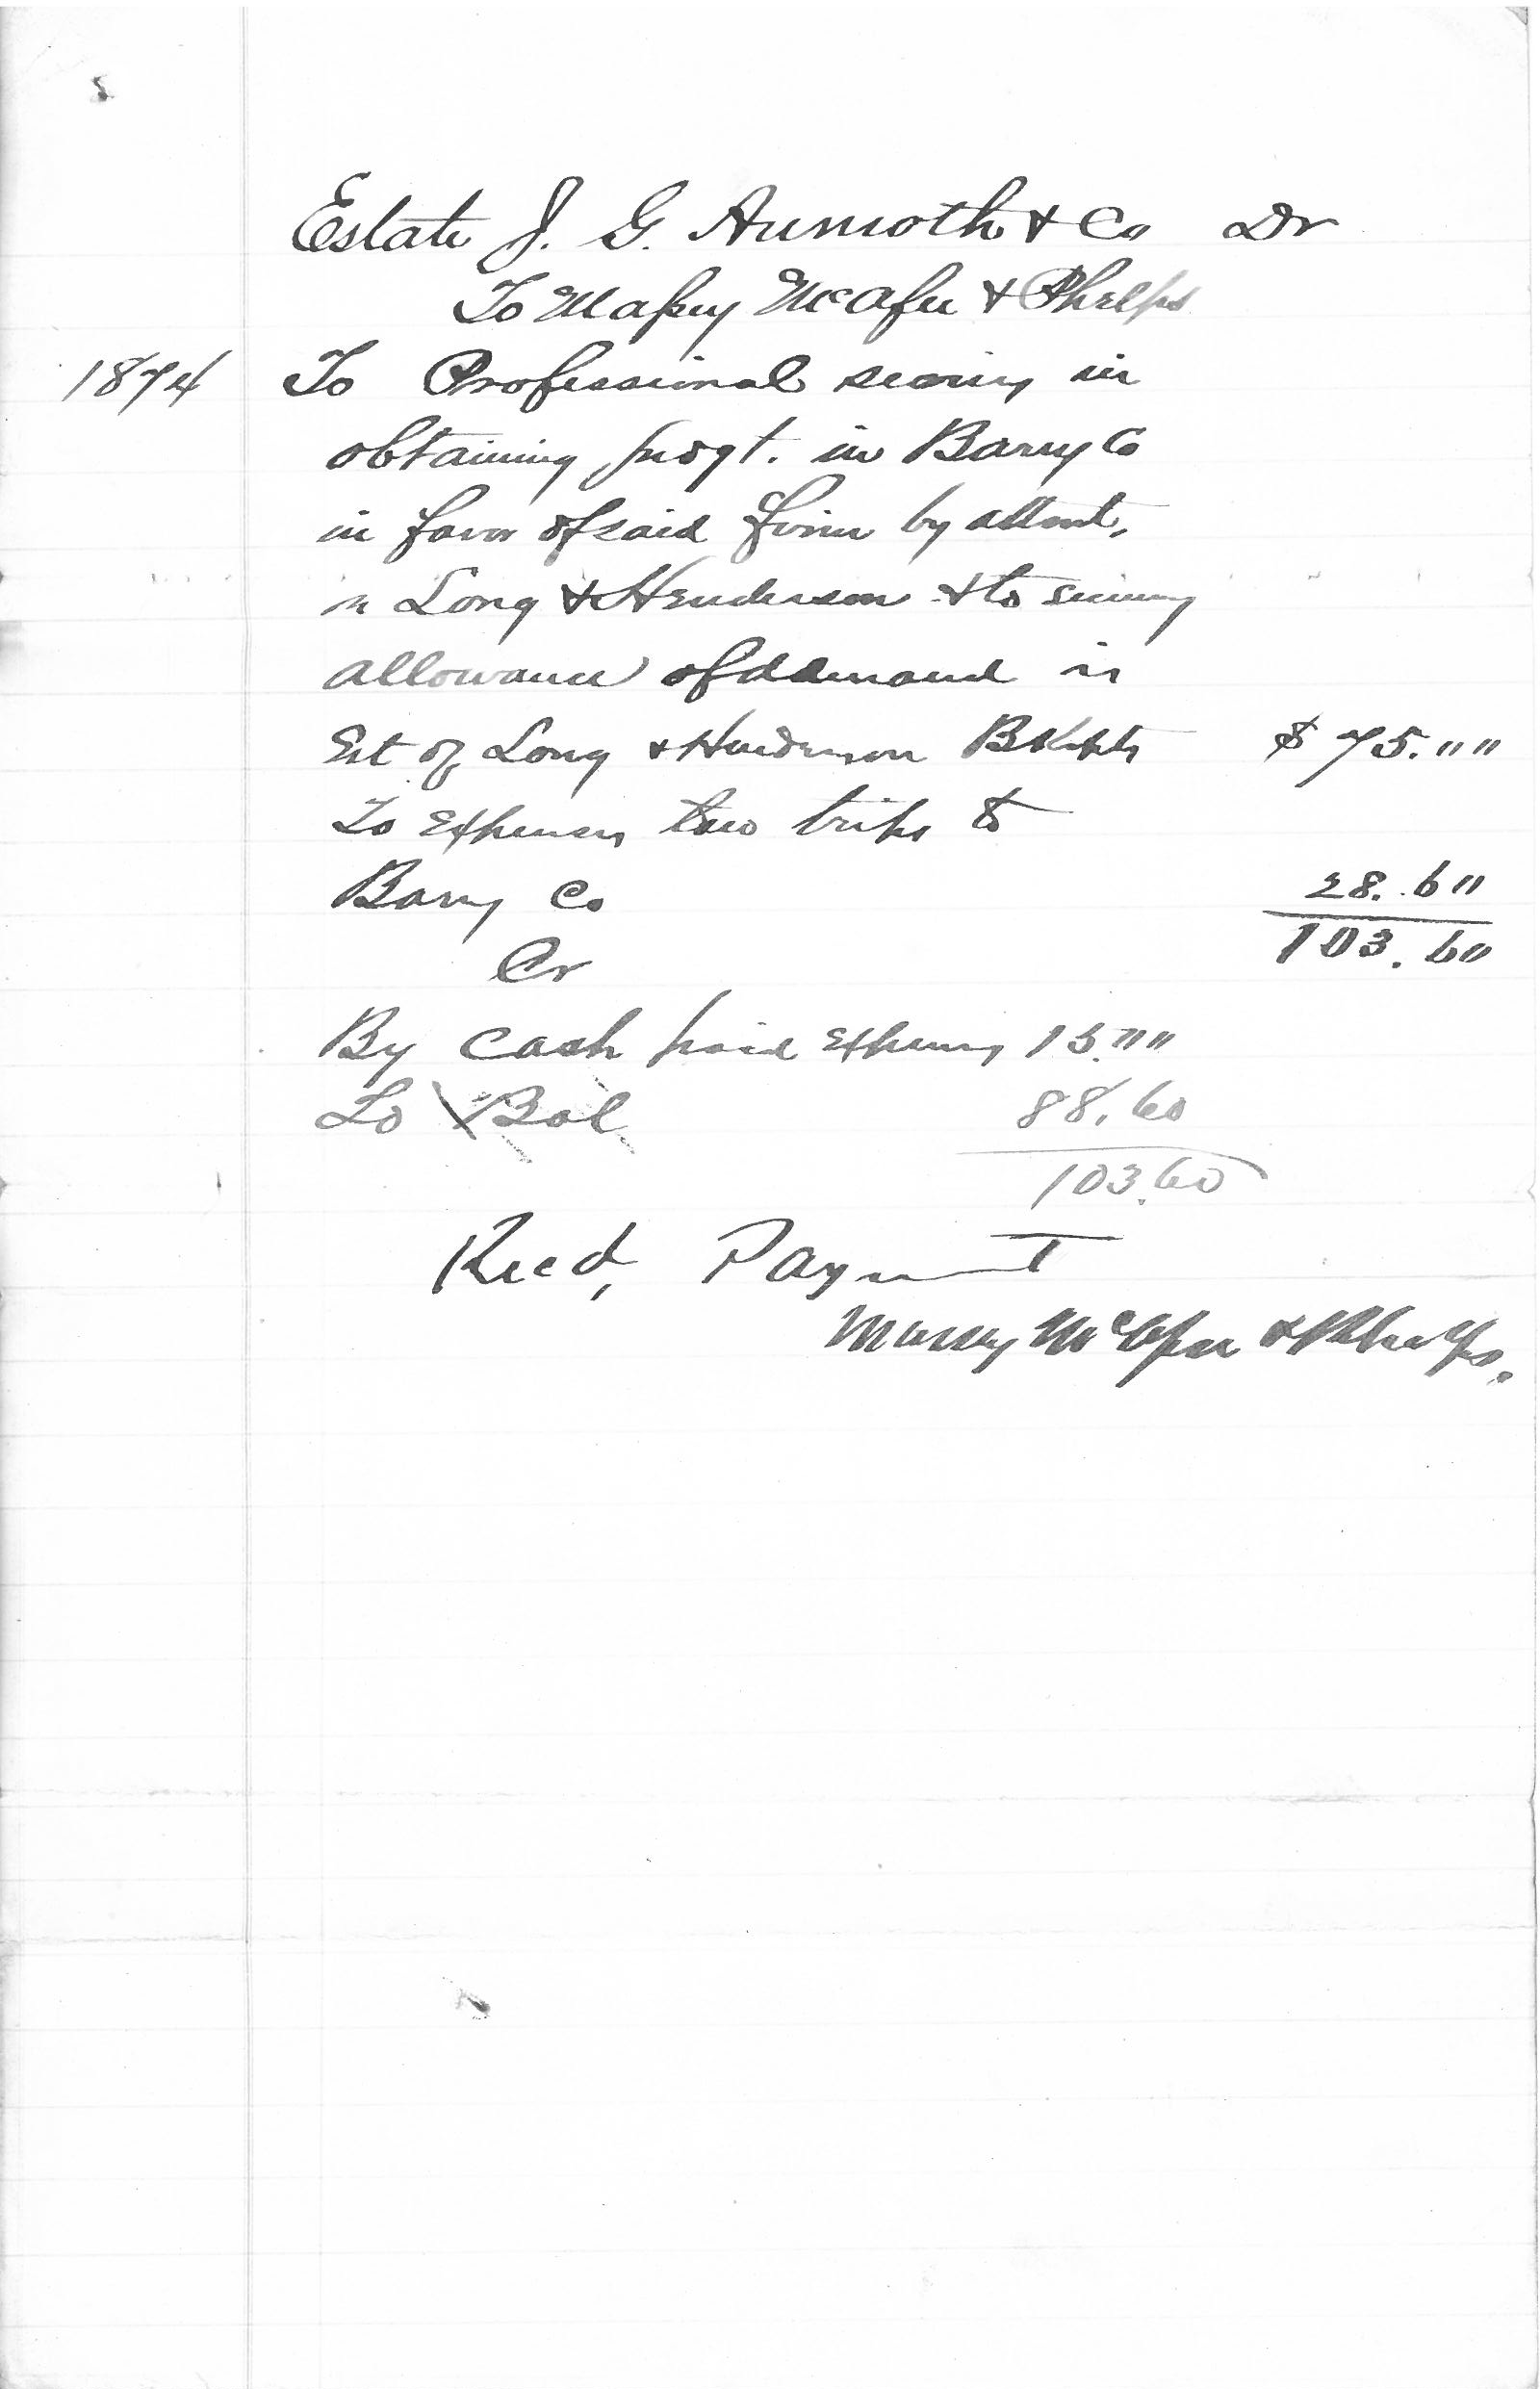 Estate J. G. Aumoth & Co Dr
To Massey McAfee & Phelps
1874 To Professional services in
obtaining judgt. in Barry Co
in favor of said firm by attmt.
in Long & Henderson & to
allowance of demand in
Est of Long & Henderson Bkpts $75.""
To Expenses two trips to
Barry Co 28.6"
103.6"
Cr
By Cash paid Expenses 15.""
To Bal 88.60
103.60
Recd, Payment
Massey McAfee & Phelps.